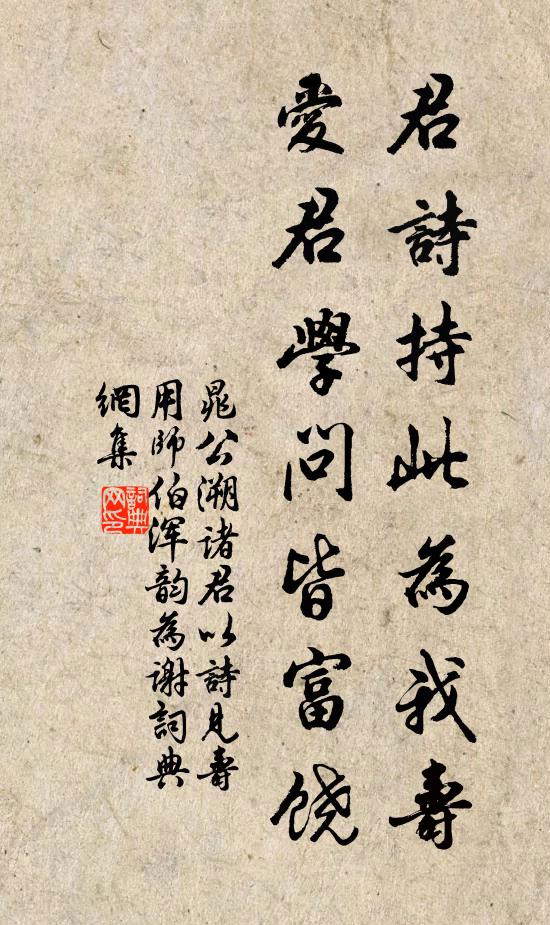 君詩持此為我壽
愛君學問皆富饶
晁公溯诸君以詩見壽
用師伯浑韵為谢詞典
網集
詞典
网印